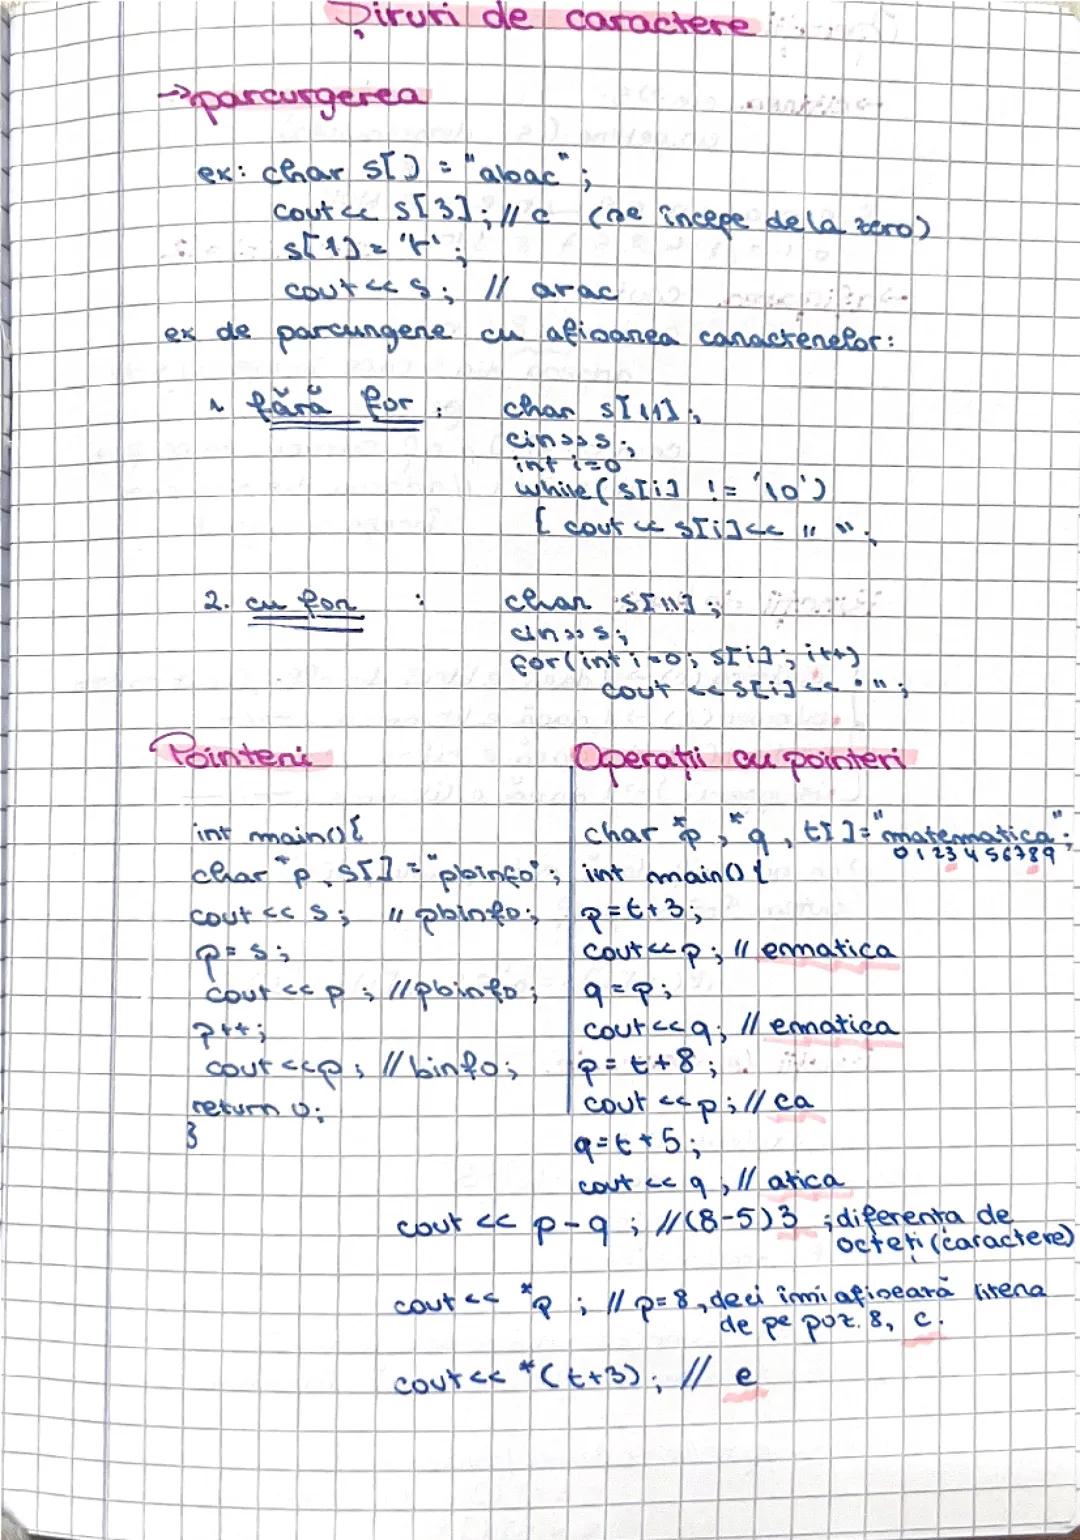 Șiruri de caractere
→ parcurgerea
ex: char s[] = "abac";
cout<< s[3]; // c (se începe de la zero)
s[1] = 'r';
cout<< s; // arac
ex de parcurgere cu afișarea caracterelor:
1. fără for : char s[11];
cin>>s;
int i=0
while( s[i] != '\0')
[ cout << s[i]<< " ";
2. cu for : char s[11];
cin>> s;
for(int i=0; s[i]; i++)
cout << s[i]<< " ";
Pointeri
int main(){
char *p, s[] = "pbinfo";
cout << s; // pbinfo;
p= s;
cout << p ; //pbinfo;
p++;
cout<<p; // binfo;
return 0;
}
Operații cu pointeri
char *p, *q, t[]="matematica";
0 1 2 3 4 5 6 7 8 9
int main(){
p=t+3;
cout<<p; // ematica
q=p;
cout<<q; // ematica
p= t+8;
cout <<p; // ca
q=t+5;
cout << q, // atica
cout << p-q ; //(8-5)3 ;diferența de
octeți (caractere)
cout<< *p ; // p=8, deci îmi afișeară litera
de pe poz. 8, c.
cout<< *(t+3); // e